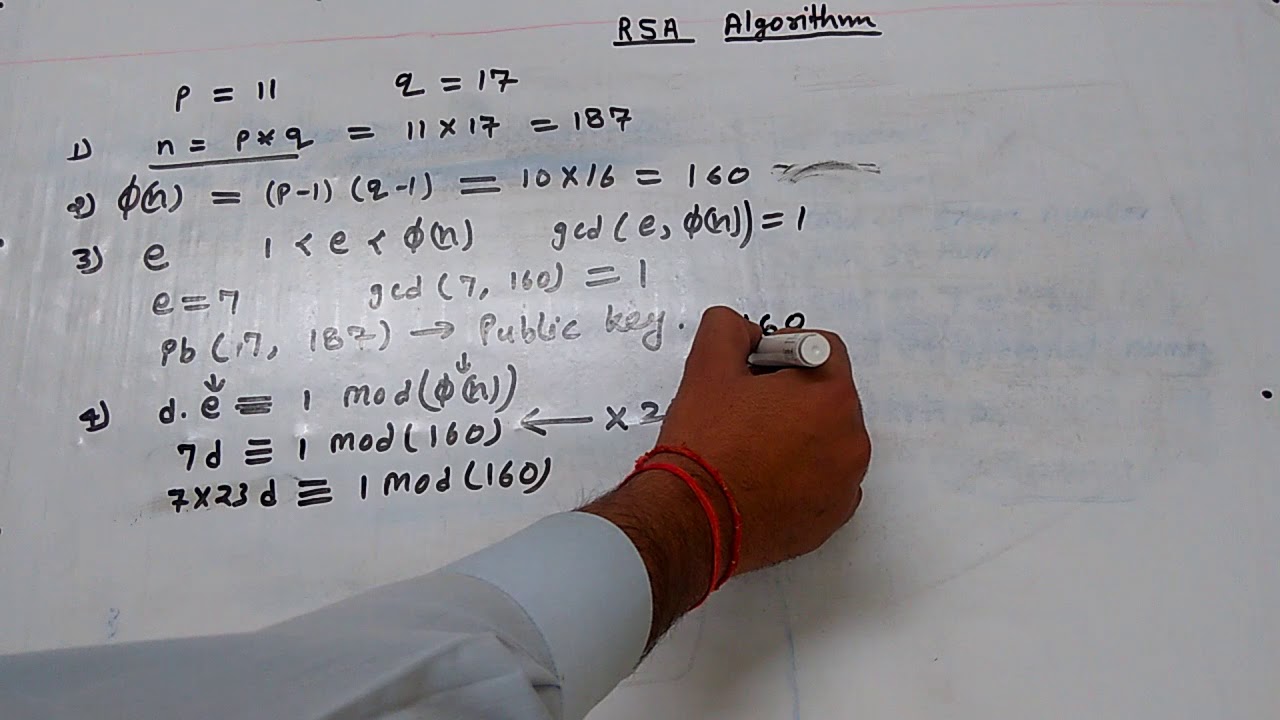 RSA Algorithm
p = 11 q = 17
1) n = p * q = 11 × 17 = 187
2) ϕ(n) = (p-1) (q-1) = 10 × 16 = 160
3) e 1 < e < ϕ(n) gcd(e, ϕ(n)) = 1
e = 7 gcd(7, 160) = 1
Pb(7, 187) → Public key. 160
4) d.e ≡ 1 mod(ϕ(n))
7d ≡ 1 mod(160) ← × 2
7×23d ≡ 1 mod(160)